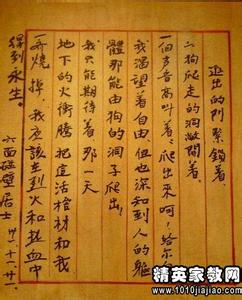 进出的门紧锁着
狗爬走的洞敞開着
一个声音高叫着爬出來呵，給尔
我渴望着自由，但也深知到人的軀
體那能由狗的洞子爬出！
我只能期待着那一天
地下的火衝騰把這活棺材和我
一齊燒掉，我应該在烈火和热血中
得到永生。
六面碰壁居士 卅一.十一.廿一.
精英家教网
www.1010jiajiao.com